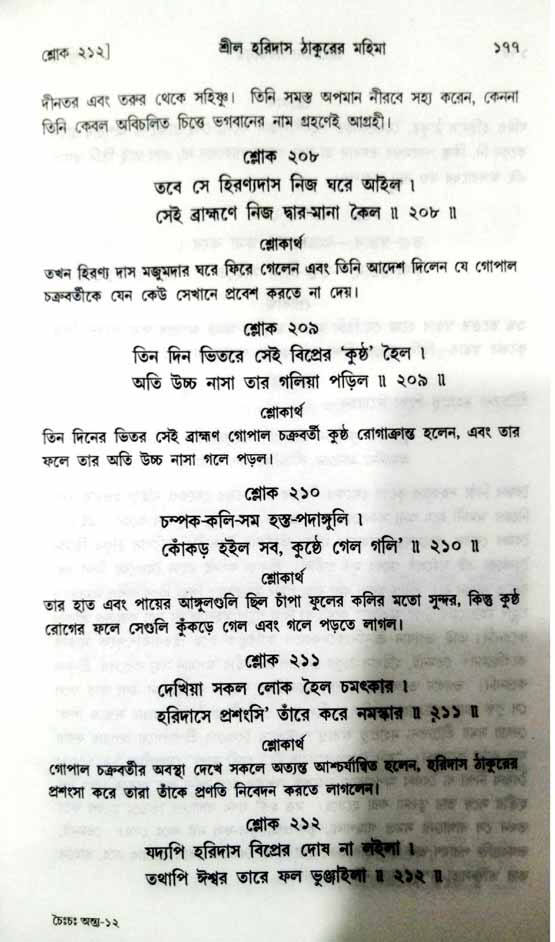 শ্লোক ২১২]
শ্রীল হরিদাস ঠাকুরের মহিমা
১৭৭
দীনতর এবং তরুর থেকে সহিষ্ণু। তিনি সমস্ত অপমান নীরবে সহ্য করেন, কেননা
তিনি কেবল অবিচলিত চিত্তে ভগবানের নাম গ্রহণেই আগ্রহী।
শ্লোক ২০৮
তবে সে হিরণ্যদাস নিজ ঘরে আইল ।
সেই ব্রাহ্মণে নিজ দ্বার-মানা কৈল ॥ ২০৮ ॥
শ্লোকার্থ
তখন হিরণ্য দাস মজুমদার ঘরে ফিরে গেলেন এবং তিনি আদেশ দিলেন যে গোপাল
চক্রবর্তীকে যেন কেউ সেখানে প্রবেশ করতে না দেয়।
শ্লোক ২০৯
তিন দিন ভিতরে সেই বিপ্রের কুষ্ঠ' হৈল ।
অতি উচ্চ নাসা তার গলিয়া পড়িল ॥ ২০৯ ॥
শ্লোকার্থ
তিন দিনের ভিতর সেই ব্রাহ্মণ গোপাল চক্রবর্তী কুষ্ঠ রোগাক্রান্ত হলেন, এবং তার
ফলে তার অতি উচ্চ নাসা গলে পড়ল।
শ্লোক ২১০
চম্পক-কলি-সম হস্ত-পদাঙ্গুলি ।
কোঁকড় হইল সব, কুষ্ঠে গেল গলি' ॥ ২১০ ॥
শ্লোকার্থ
তার হাত এবং পায়ের আঙ্গুলগুলি ছিল চাঁপা ফুলের কলির মতো সুন্দর, কিন্তু কুষ্ঠ
রোগের ফলে সেগুলি কুঁকড়ে গেল এবং গলে পড়তে লাগল।
শ্লোক ২১১
দেখিয়া সকল লোক হৈল চমৎকার ।
হরিদাসে প্রশংসি' তাঁরে করে নমস্কার ॥ ২১১ ॥
শ্লোকার্থ
গোপাল চক্রবর্তীর অবস্থা দেখে সকলে অত্যন্ত আশ্চর্যান্বিত হলেন, হরিদাস ঠাকুরের
প্রশংসা করে তারা তাঁকে প্রণতি নিবেদন করতে লাগলেন।
শ্লোক ২১২
যদ্যপি হরিদাস বিপ্রের দোষ না লইলা ।
তথাপি ঈশ্বর তারে ফল ভুঞ্জাইলা ॥ ২১২ ॥
চৈঃচঃ অন্ত্য-১২